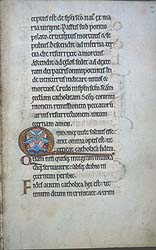 ceptus est de spū scō nat' ex ma
ria virgine. Passus sub pontio
pylato. crucifixus mortuus et se
pultus. Descendit ad inferna ter
cia die resurrexit a mortuis.
Ascendit ad celos sedet ad dexte
ram dei patris omnipotentis in
de venturus iudicare vivos et
mortuos. Credo in spm scm scam
eclesiam catholicam
nionem remissionem
carnis resurrectionem vitam
eternam amen.
Quicumque vult salvus esse
ante omnia opus est ut
teneat catholicam fidem
Quam nisi quisque integram inviola
tamque servaverit: absque dubio in
eternum peribit.
Fides autem catholica hec est: ut
unum deum in trinitate